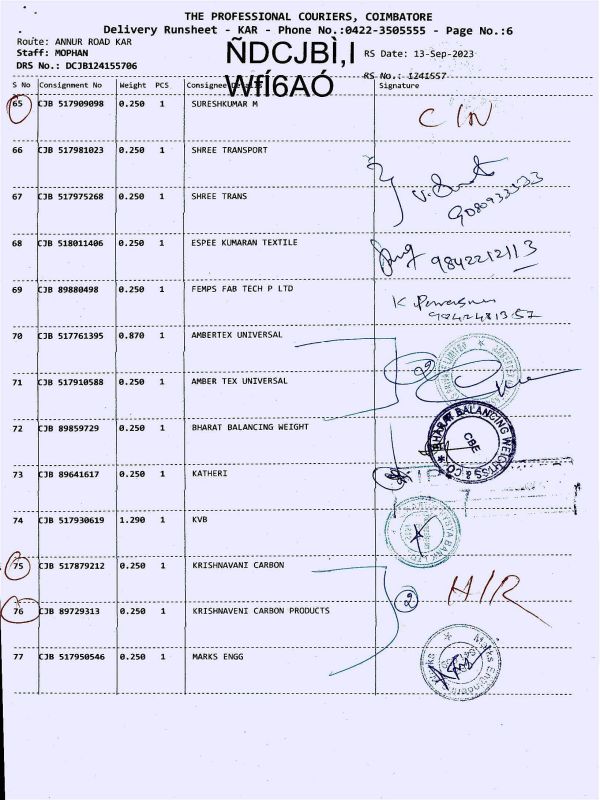 THE PROFESSIONAL COURIERS, COIMBATORE
Delivery Runsheet - KAR - Phone No.:0422-3505555 - Page No.:6
Route: ANNUR ROAD KAR
Staff: MOPHAN
RS Date: 13-Sep-2023
DRS No.: DCJB124155706
ÑDCJBÌ,I
WfÍ6AÓ
RS No.: 1241557
S No Consignment No Weight PCS Consignee Details Signature
65 CJB 517909098 0.250 1 SURESHKUMAR M
66 CJB 517981023 0.250 1 SHREE TRANSPORT
67 CJB 517975268 0.250 1 SHREE TRANS
68 CJB 518011406 0.250 1 ESPEE KUMARAN TEXTILE 9842212113
69 CJB 89880498 0.250 1 FEMPS FAB TECH P LTD
70 CJB 517761395 0.870 1 AMBERTEX UNIVERSAL
2
71 CJB 517910588 0.250 1 AMBER TEX UNIVERSAL
72 CJB 89859729 0.250 1 BHARAT BALANCING WEIGHT
BHARAT BALANCING WEIGHTSS & CO
CBE
73 CJB 89641617 0.250 1 KATHERI
74 CJB 517930619 1.290 1 KVB
75 CJB 517879212 0.250 1 KRISHNAVANI CARBON
76 CJB 89729313 0.250 1 KRISHNAVENI CARBON PRODUCTS 2
77 CJB 517950546 0.250 1 MARKS ENGG